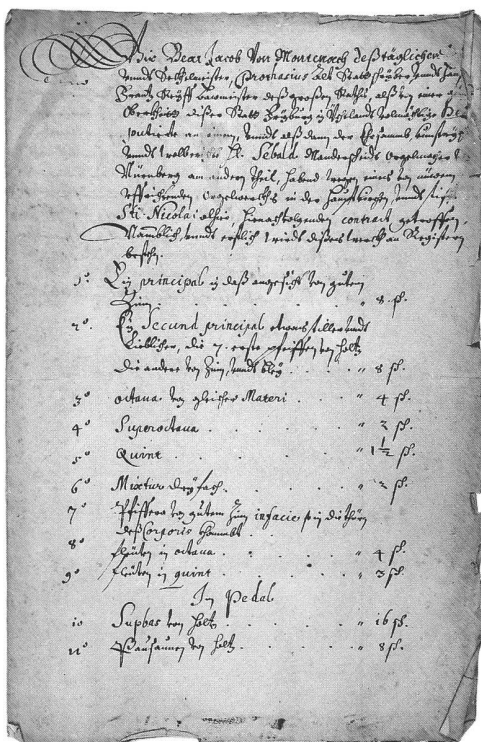 Wir Beat Jacob Von Montenach deß täglichen
unndt Seckelmeister, Prothasius alt Stattschryber unndt Hanß
Frantz Bauwmeister deß großen Rhats, alß von einer
Oberkheitt diser Statt Fryburg in Ychtlandt
putierte an einem, unndt alß dann der Ehrsamb
unndt H. Sebald Manderscheidt Orgelmacher
Nürnberg am andern theil, habend wegen eines
Orgelwercks in der Haupttkirchen, unndt
Sti. Nicolai alhie hernachvolgenden contract getroffen
Namblich, unndt erstlich wirdt dißes werck an Registern
bestehn.
1° Ein principal in daß angesicht von gutem
Zinn . . . " 8 ß.
2° Ein Secund principal etwas stiller undt
lieblicher, die 7. erste pfeiffen von holtz
die andere von Zinn, unndt bley . . . " 8 ß.
3° octava von gleicher Materi . . . " 4 ß.
4° Superoctava . . . " 2 ß.
5° Quint . . . " 1½ ß.
6° Mixtur dryfach . . . " 2 ß.
7° Pfiffera von gutem Zinn in facie so in die thürn
deß Corporis khombt . . .
8° fleüten in octava . . . " 4 ß.
9° fleüten in quint . . . " 3 ß.
In Pedal
10 Supbas von holtz . . . " 16 ß.
11° Pausaunen von holtz . . . " 8 ß.